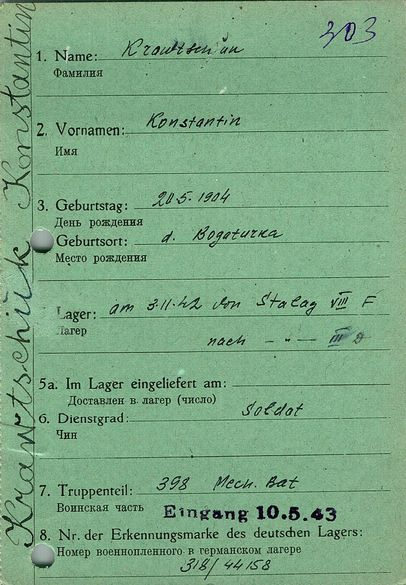 303
1. Name: Krawtschun
Фамилия
2. Vornamen: Konstantin
Имя
3. Geburtstag: 20.5.1904
День рождения
Geburtsort: d. Bogaturka
Место рождения
Lager: am 3.11.42 von Stalag VIII F
Лагер
nach - " - III D
5a. Im Lager eingeliefert am:
Доставлен в лагер (число)
6. Dienstgrad: Soldat
Чин
7. Truppenteil: 398 Mech. Bat
Воинская часть
Eingang 10.5.43
8. Nr. der Erkennungsmarke des deutschen Lagers:
Номер военнопленного в германском лагере
318/44158
Krawtschuk Konstantin